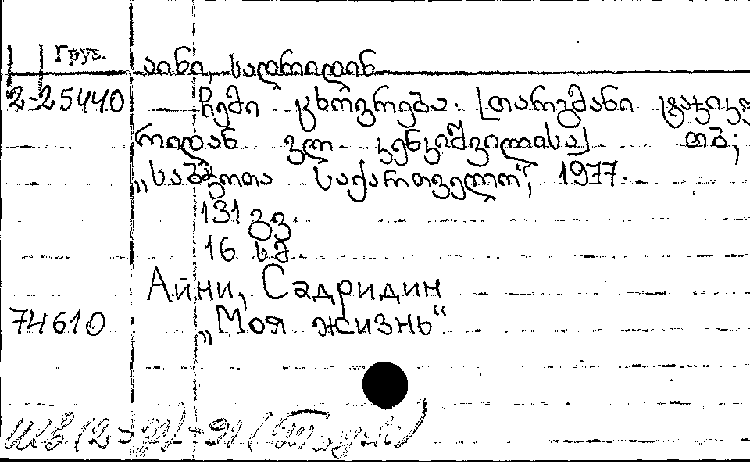 Груз.
აინი, სადრიდინ
2-25440 ჩემი ცხოვრება. [თარგმანი ტაჯიკუ
რიდან ვლ კენკიშვილისა] თბ;
„საბჭოთა საქართველო“, 1977.
131 გვ.
16 სმ.
Айни, Садридин
74610 „Моя жизнь“